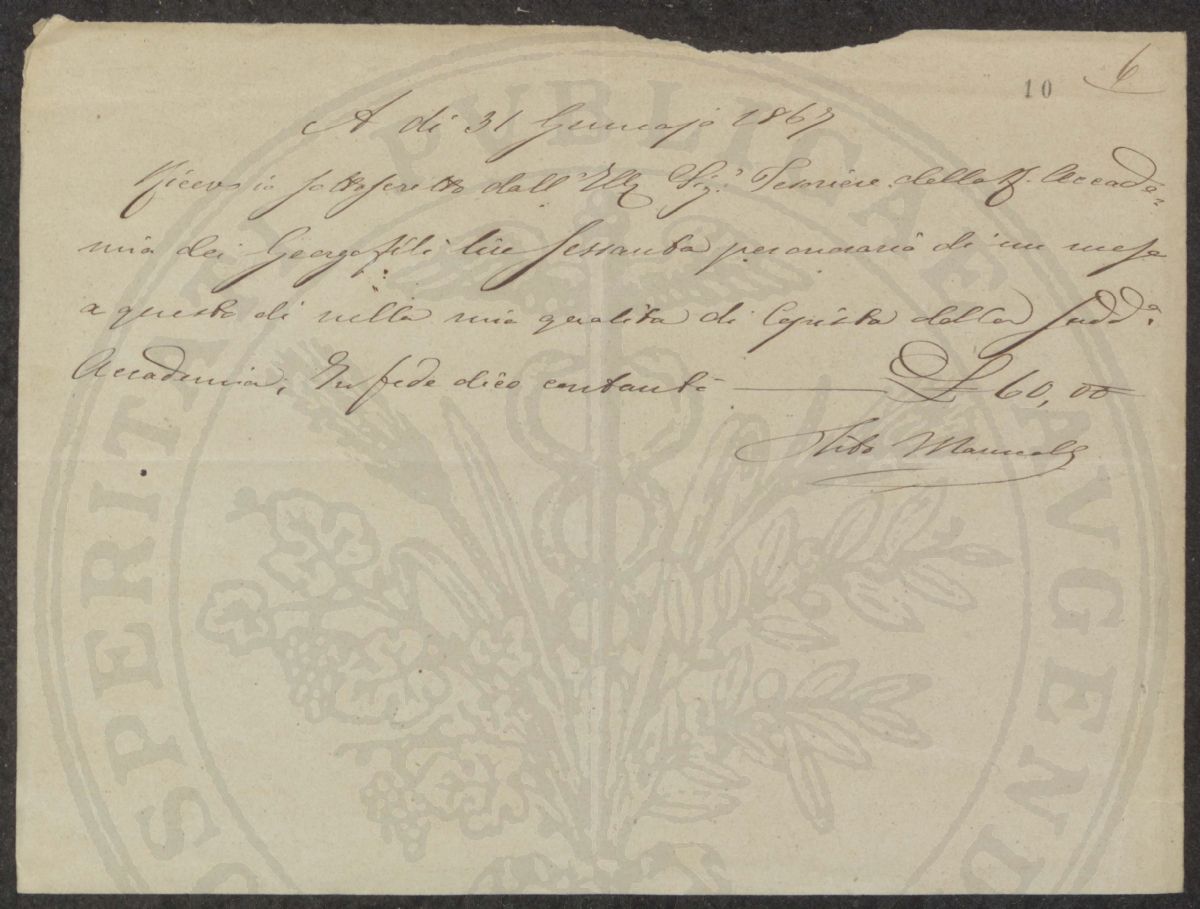 10 6
A di 31 Gennajo 1867
Ricevo io sottoscritto dall' Ill. Sig.r Tesoriere della R. Accade-
mia dei Georgofili lire sessanta per onorario di un mese
a questo di nella mia qualità di Copista della Sudd.a
Accademia, In fede dico contanti ——— £ 60,00
Tito
PROSPERITATI PUBLICAE AUGENDAE